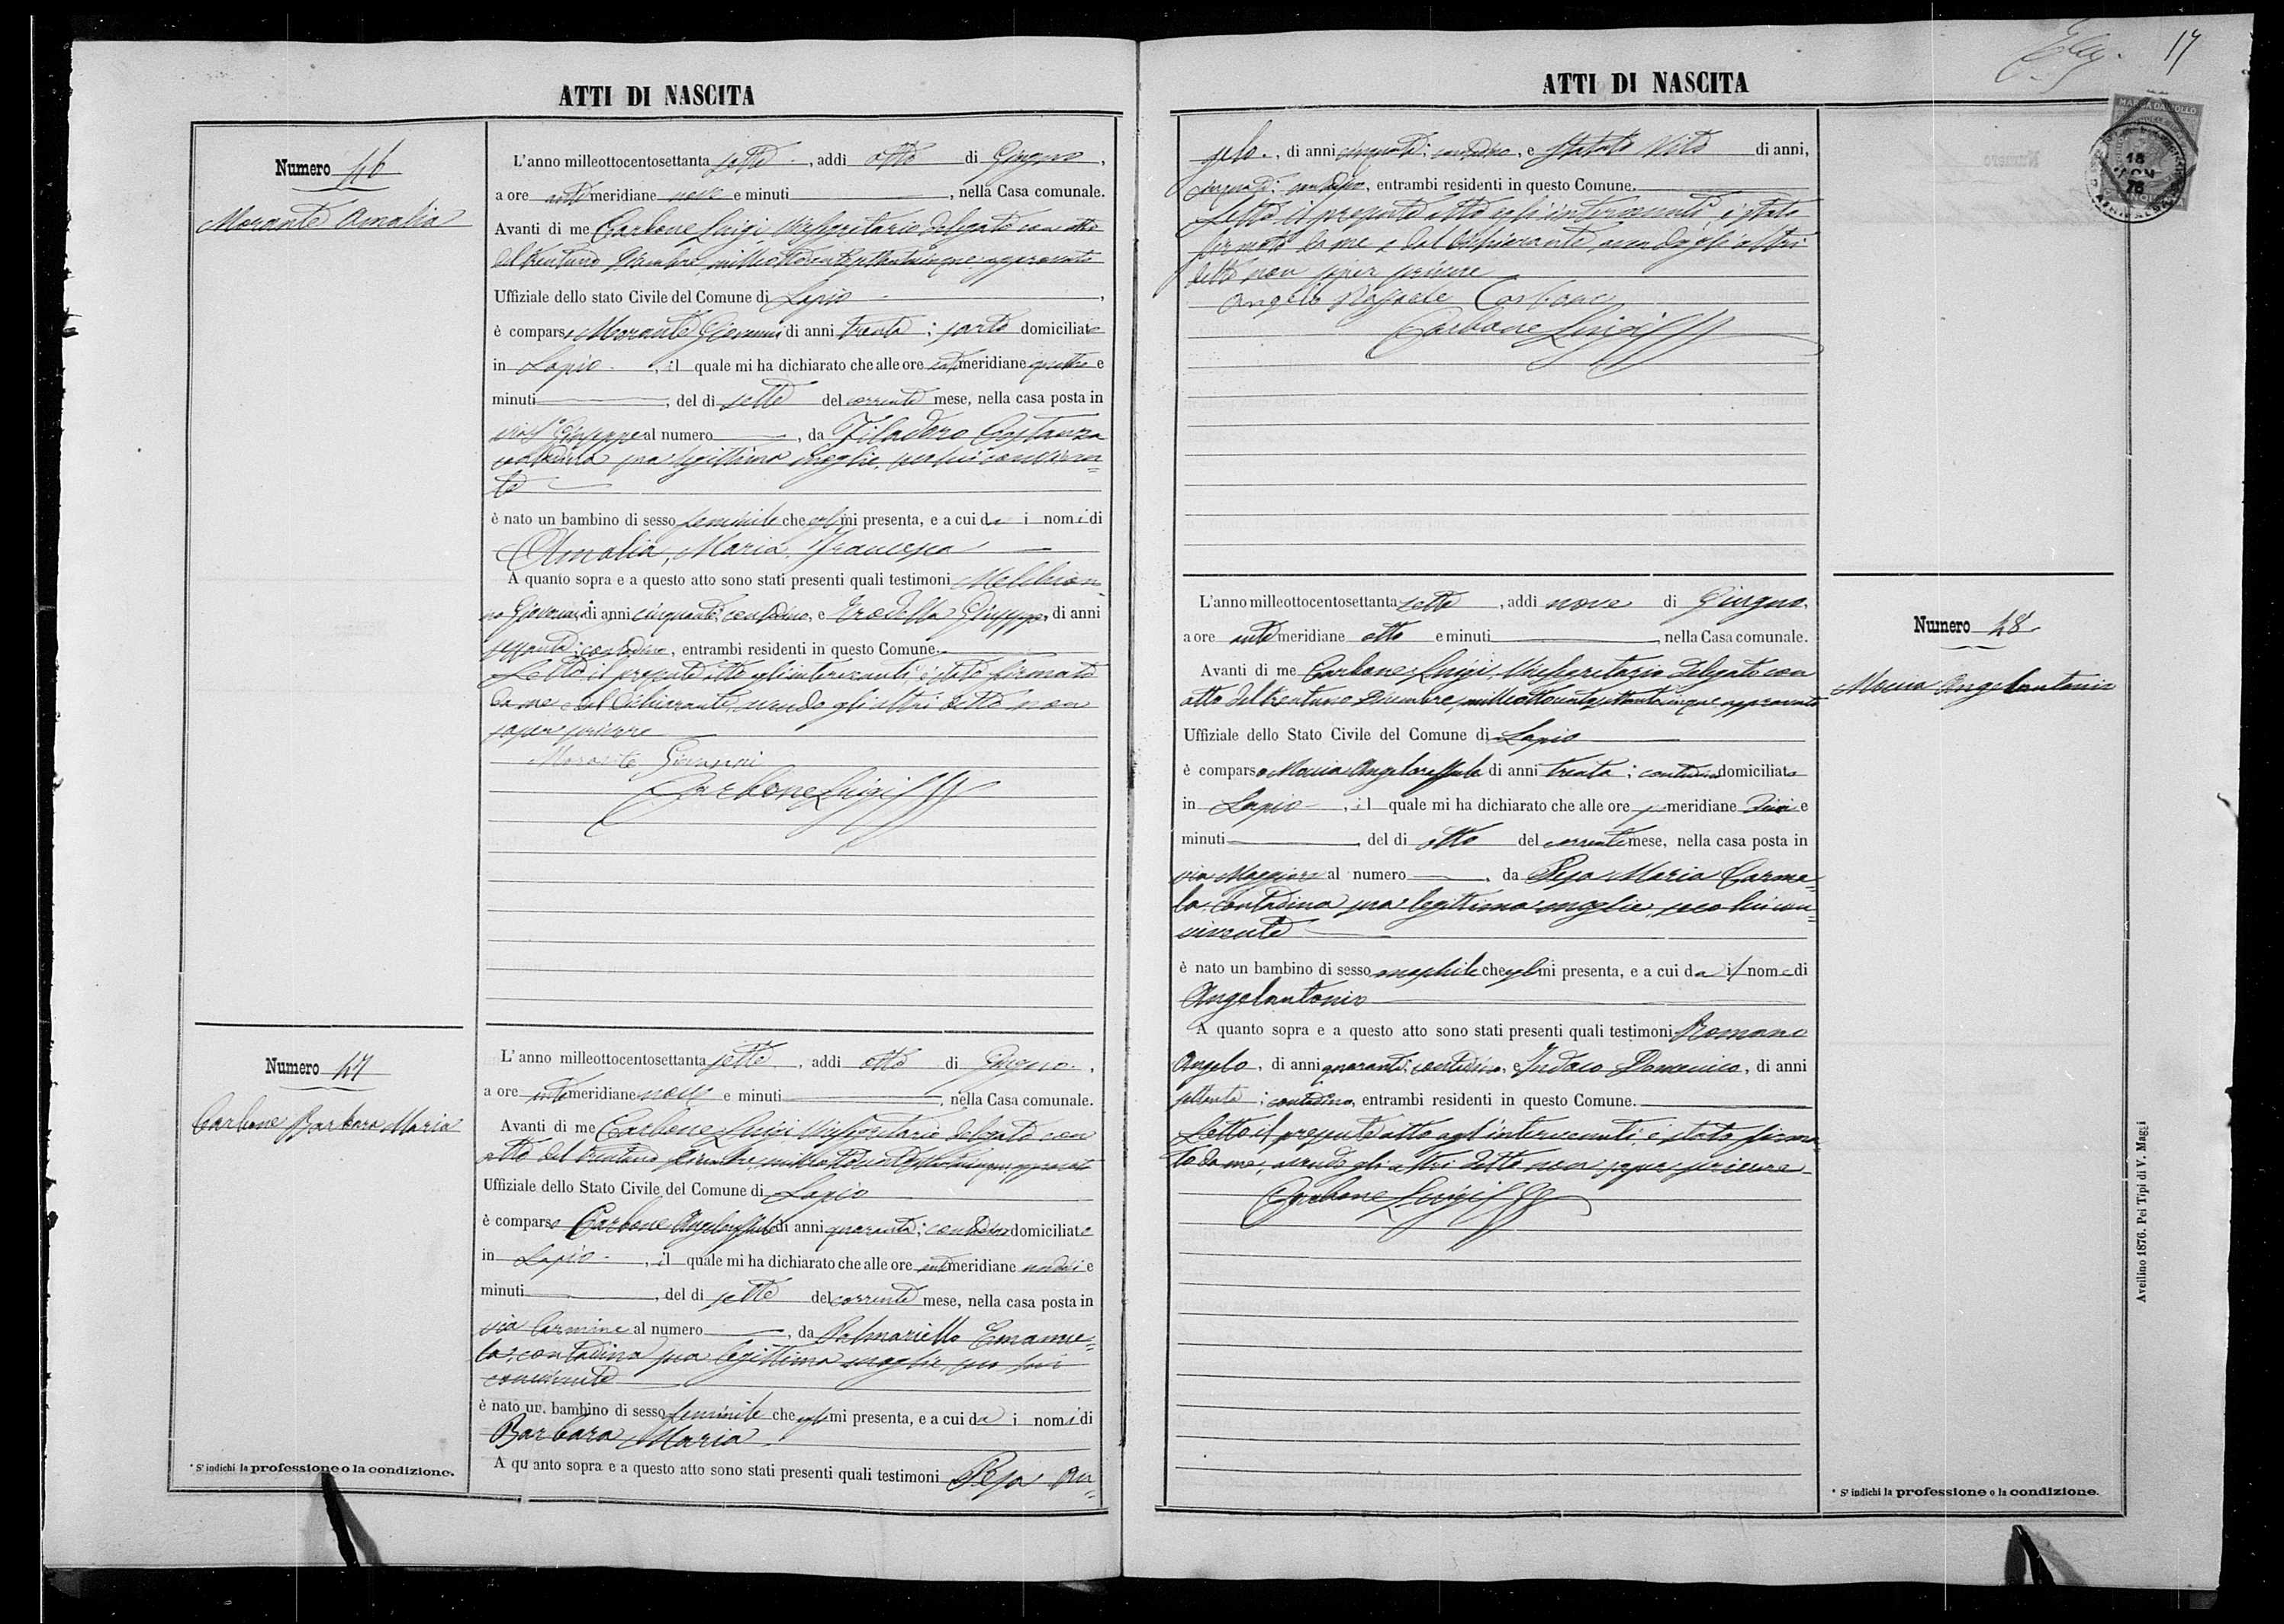 ATTI DI NASCITA
Numero 46
Morante Amalia
L'anno milleottocentosettanta sette, addi otto di Giugno,
a ore anti meridiane nove e minuti , nella Casa comunale.
Avanti di me Carbone Luigi, Vicesegretario delegato con atto
del trentuno Dicembre milleottocentosettantacinque approvato
Uffiziale dello stato Civile del Comune di Lapio
è comparso Morante Giovanni di anni trenta; sarto domiciliato
in Lapio, il quale mi ha dichiarato che alle ore antimeridiane quattro e
minuti , del dì sette del corrente mese, nella casa posta in
via S. Giuseppe al numero , da Filadoro Costanza
contadina sua legittima moglie, seco lui conviven=
te
è nato un bambino di sesso feminile che egli mi presenta, e a cui da i nomi di
Amalia, Maria, Francesca
A quanto sopra e a questo atto sono stati presenti quali testimoni Melchion
no Giovanni, di anni cinquanta; contadino, e Trodella Giuseppe, di anni
sessanta; contadino, entrambi residenti in questo Comune.
Letto il presente atto agli intervenuti, è stato firmato
da me e dal dichiarante, avendo gli altri detto non
saper scrivere
Morante Giovanni
Carbone Luigi
Numero 47
Carbone Barbara Maria
L'anno milleottocentosettanta sette, addi otto di Giugno,
a ore antimeridiane nove e minuti , nella Casa comunale.
Avanti di me Carbone Luigi Vicesegretario delegato con
atto del trentuno Dicembre milleottocentosettantacinque approvato
Uffiziale dello Stato Civile del Comune di Lapio
è comparso Carbone Angeloraffaele di anni quaranta; contadino domiciliato
in Lapio, il quale mi ha dichiarato che alle ore antimeridiane undici e
minuti , del dì sette del corrente mese, nella casa posta in
via Carmine al numero , da Palmariello Emanue=
la, contadina sua legittima moglie, seco lui
convivente
è nato un bambino di sesso feminile che egli mi presenta, e a cui da i nomi di
Barbara Maria
A quanto sopra e a questo atto sono stati presenti quali testimoni Pepa An=
* S'indichi la professione o la condizione.
17
ATTI DI NASCITA
MARCA DA BOLLO
gelo, di anni cinquanta; contadino, e Statuto Vito di anni,
cinquanta; contadino, entrambi residenti in questo Comune.
Letto il presente atto agli intervenuti è stato
firmato da me e dal dichiarante, avendo gli altri
detto non saper scrivere
Angelo Raffaele Carbone
Carbone Luigi
L'anno milleottocentosettanta sette, addi nove di Giugno,
a ore antimeridiane otto e minuti , nella Casa comunale.
Avanti di me Carbone Luigi, Vicesegretario delegato con
atto del trentuno Dicembre, milleottocentosettantacinque approvato
Uffiziale dello Stato Civile del Comune di Lapio
è comparso Moccia Angeloraffaele di anni trenta; contadino domiciliato
in Lapio, il quale mi ha dichiarato che alle ore p meridiane dieci e
minuti , del dì otto del corrente mese, nella casa posta in
via Maggiore al numero , da Pepa Maria Carme=
la, contadina sua legittima moglie, seco lui con=
vivente
è nato un bambino di sesso maschile che egli mi presenta, e a cui da il nome di
Angelantonio
A quanto sopra e a questo atto sono stati presenti quali testimoni Romano
Angelo, di anni quaranta; contadino, e Indaco Domenico, di anni
settanta; contadino, entrambi residenti in questo Comune.
Letto il presente atto agl'intervenuti, è stato firma
to da me, avendo gli altri detto non saper scrivere
Carbone Luigi
Numero 48
Moccia Angelantonio
Avellino 1876. Pei Tipi di V. Maggi
* S'indichi la professione o la condizione.